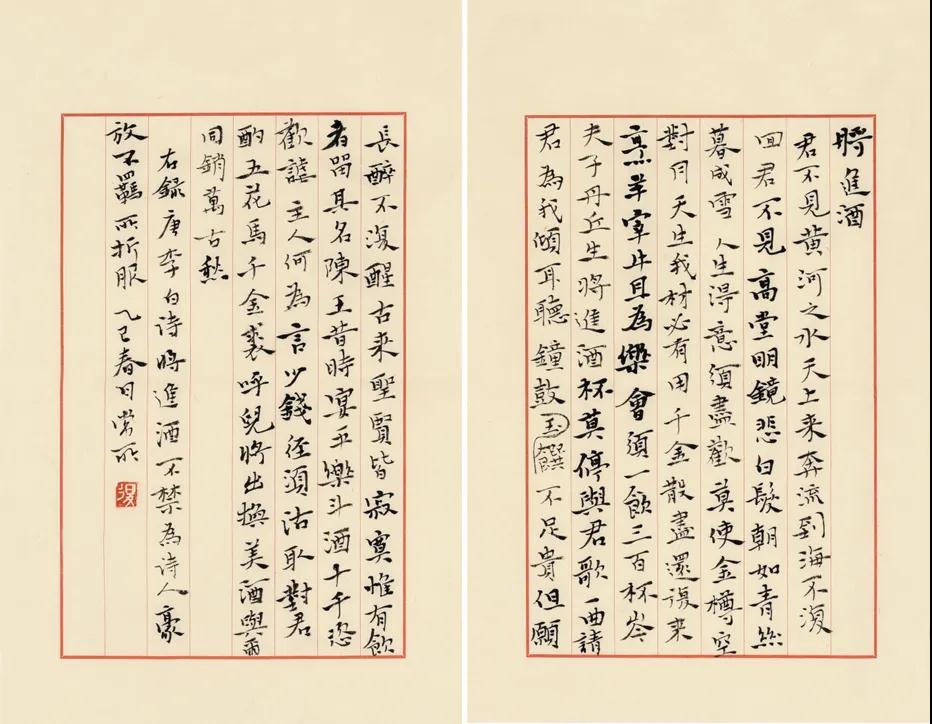 將進酒
君不見黃河之水天上来奔流到海不復
回君不見高堂明鏡悲白髮朝如青絲
暮成雪人生得意須盡歡莫使金樽空
對月天生我材必有用千金散盡還復来
烹羊宰牛且為樂會須一飲三百杯岑
夫子丹丘生將進酒杯莫停與君歌一曲請
君為我傾耳聽鐘鼓玉饌不足貴但願
長醉不復醒古来聖賢皆寂寞惟有飲
者留其名陳王昔時宴平樂斗酒十千恣
歡謔主人何為言少錢徑須沽取對君
酌五花馬千金裘呼兒將出換美酒與爾
同銷萬古愁
右錄唐李白诗將進酒不禁為诗人豪
放不羈所折服乙巳春日